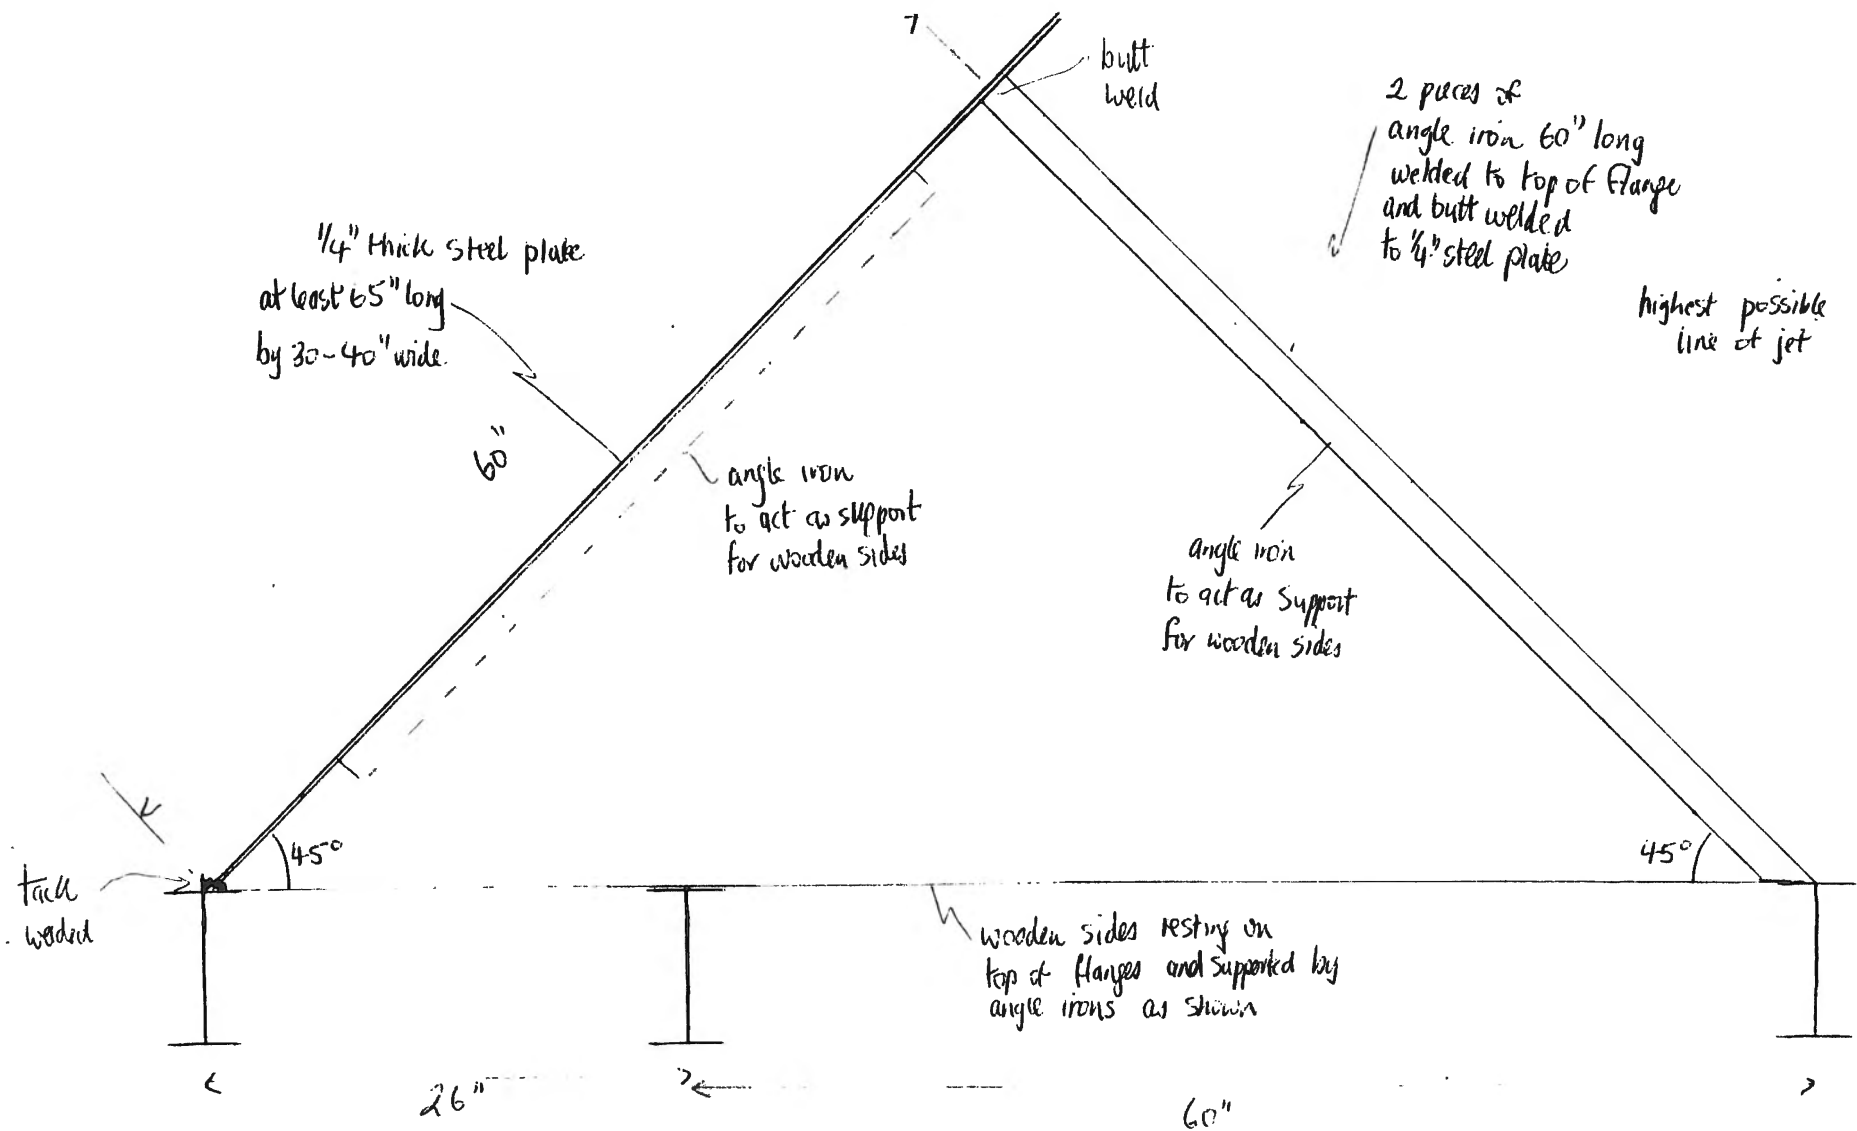 butt
weld
2 pieces of
angle iron 60" long
welded to top of flange
and butt welded
to 1/4" steel plate
1/4" thick steel plate
at least 65" long
by 30-40" wide.
highest possible
line of jet
60"
angle iron
to act as support
for wooden sides
angle iron
to act as support
for wooden sides
45°
45°
tack
welded
wooden sides resting on
top of flanges and supported by
angle irons as shown
26"
60"